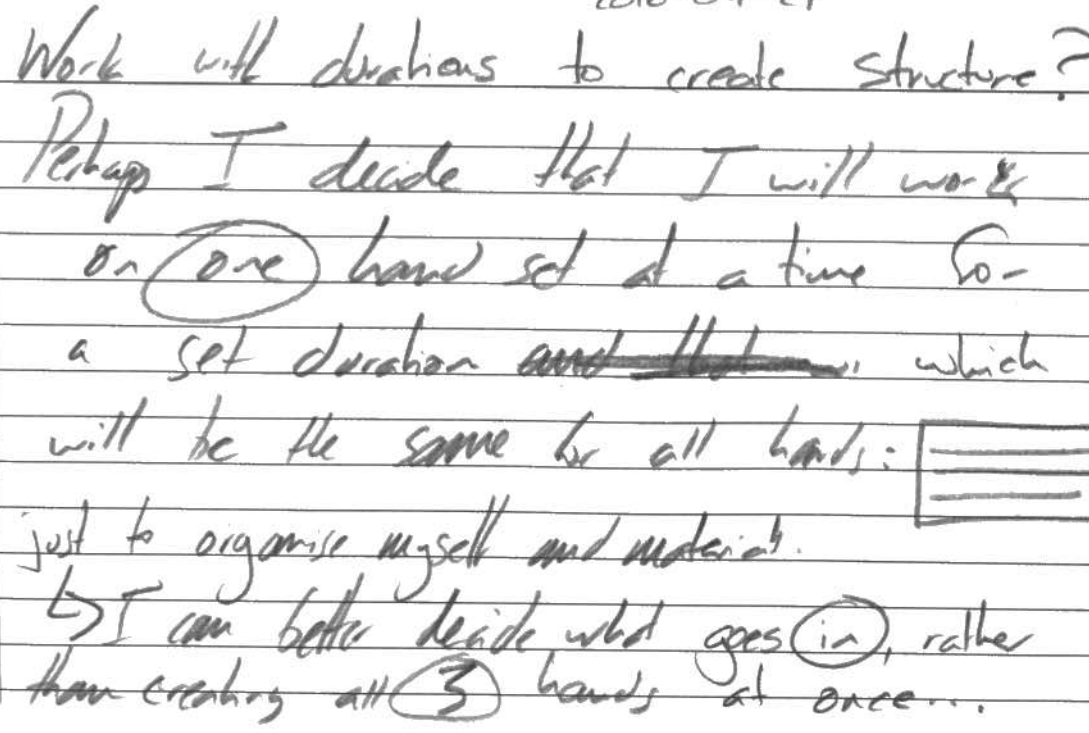 Work with durations to create structure?
Perhaps I decide that I will work
on one hand set at a time for
a set duration which
will be the same for all hands:
just to organise myself and materials.
↳ I can better decide what goes in, rather
than creating all 3 hands at once....